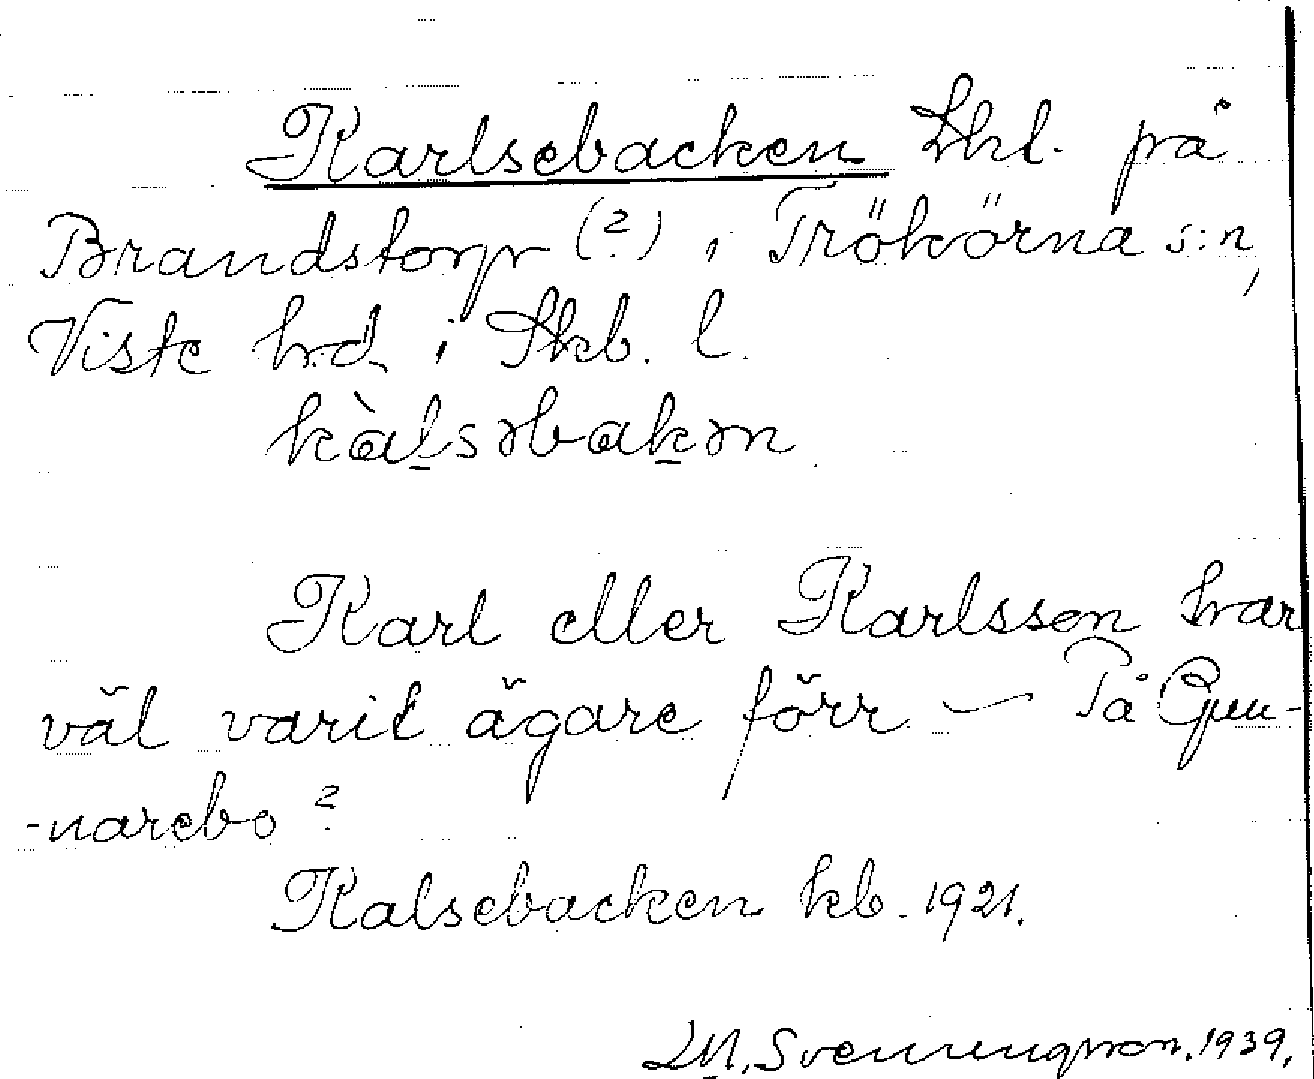 Karlsebacken Lhl. på
Brandstorp (?) i Trökörna s:n,
Viste hd i Skb. l.
kàl̠səbak̠ən
Karl eller Karlsson har
väl varit ägare förr — På Gun-
-narebo?
Kalsebacken kb. 1921.
1939.